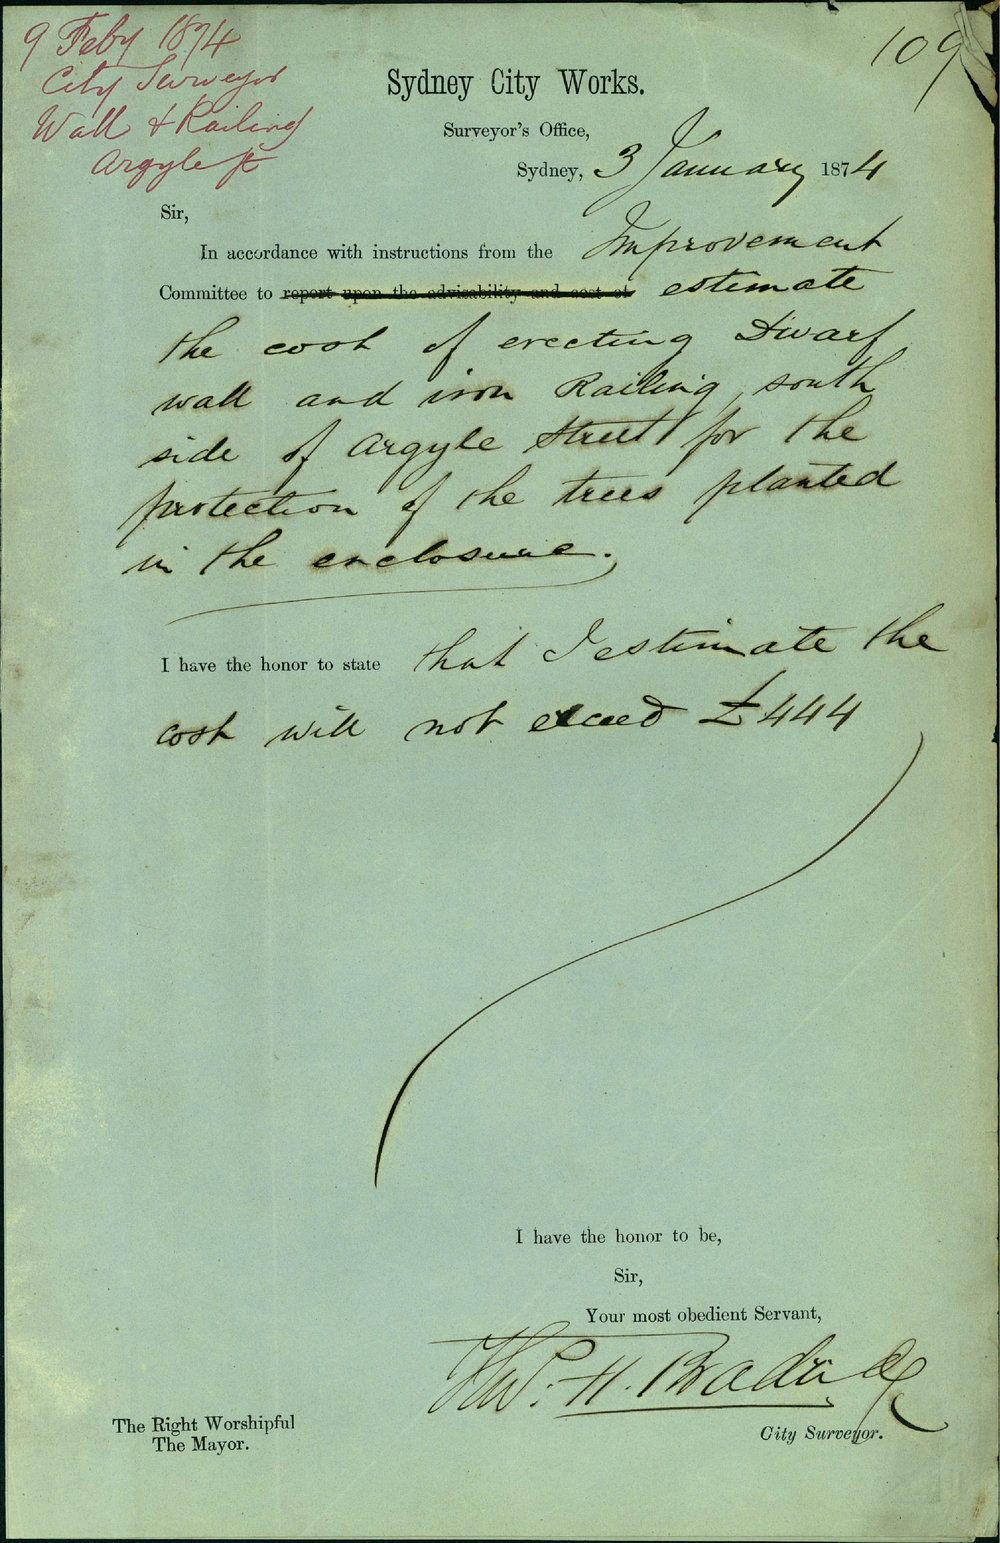 9 Feby 1874
City Surveyor
Wall & Railing
Argyle St
109
Sydney City Works.
Surveyor's Office,
Sydney, 3 January 1874
Sir,
In accordance with instructions from the Improvement
Committee to report upon the advisability and cost of estimate
the cost of erecting Dwarf
wall and iron Railing, south
side of Argyle Street for the
protection of the trees planted
in the enclosure.
I have the honor to state that I estimate the
cost will not exceed £444
I have the honor to be,
Sir,
Your most obedient Servant,
Thos. H. Bradridge
City Surveyor.
The Right Worshipful
The Mayor.